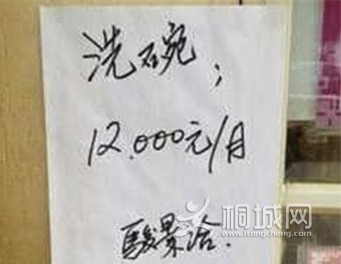 洗碗;
12.000元/月
骏景酒.
桐城网
www.itongcheng.com